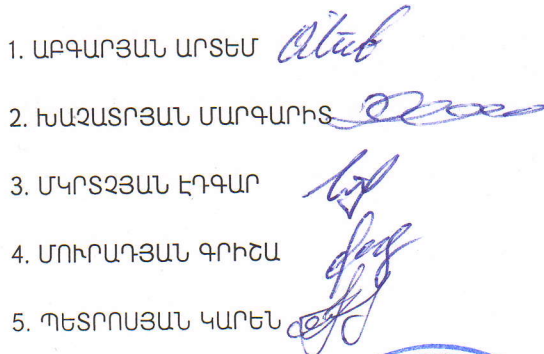 1. ԱԲԳԱՐՅԱՆ ԱՐՏԵՄ
2. ԽԱՉԱՏՐՅԱՆ ՄԱՐԳԱՐԻՏ
3. ՄԿՐՏՉՅԱՆ ԷԴԳԱՐ
4. ՄՈՒՐԱԴՅԱՆ ԳՐԻՇԱ
5. ՊԵՏՐՈՍՅԱՆ ԿԱՐԵՆ